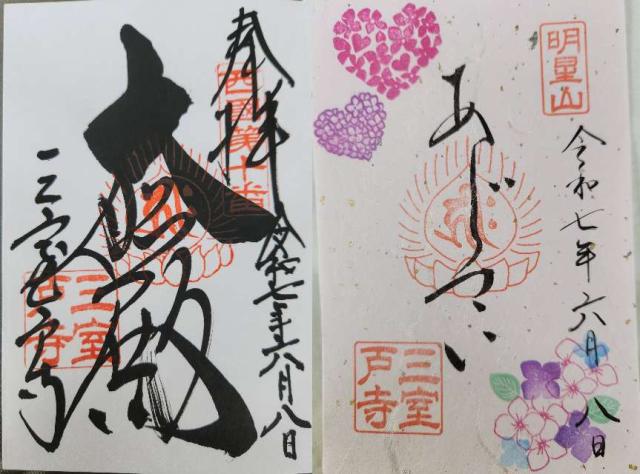 奉拝
西国第十番
大悲殿
令和七年六月八日
三室戸寺
三室
戸寺
明星山
あじさい
令和七年六月八日
三室
戸寺